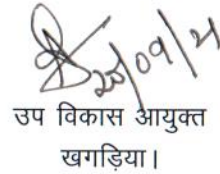 20/09/21
उप विकास आयुक्त
खगड़िया।